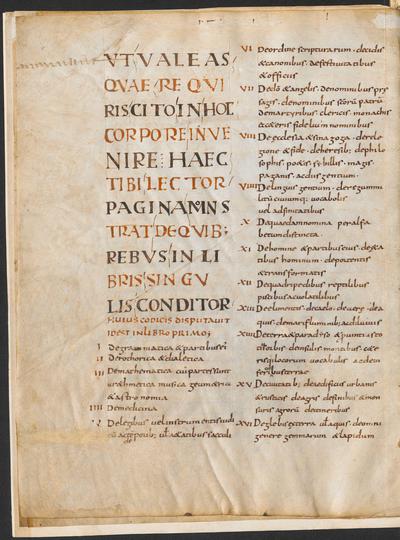 VT VALEAS
QVAE REQVI
RIS CITO IN HOC
CORPORE INVE
NIRE HAEC
TIBI LECTOR
PAGINA MNS
TRAT DE QVIB;
REBVS IN LI
BRIS SINGV
LIS CONDITOR
HUIUS CODICIS DISPUTAVIT
IDEST IN LIBRO PRIMO;
I De grammatica & partibus ei
II De rethorica & dialetica
III De mathematica cui partes sunt
arithmetica musica geum&rica
& astronomia
IIII De medicina
V De legibus uel instrumentis iudi
VI De ordine scripturarum. de ciclis
& canonibus. de festiuitatibus
& officiis
VII De do & angelis. de nominibus pre
sagis. de nominibus scorum patrum
de martyribus clericis. monachis
& ceteris fidelium nominibus
VIII De ecclesia & sinagoga. de reli
gione & fide. de heresib; de philo
sophis. po&is. sybillis. magis.
paganis. ac dis gentium.
VIIII De linguis gentium. de regum mi
litum ciuiumq; uocabolis
uel adfinitatibus
X De quaedam nomina per alfa
betum distincta.
XI De homine & partibus eius. de &a
tibus hominum. de portentis
& transformatis
XII De quadripedibus reptilibus
piscibus ac uolatilibus
XIII De elementis. de caelo. de aere. de a
quis. de mari fluminib; ac diluuiis
XIIII De terra & paradiso
risq; locorum uocabulis ac de in
ferioribus terrae
XV De ciuitatib; de aedificiis urbanis
& rusticis de agris de finibus & men
suris agrorum de itineribus
XVI De glebis ex terra uel aquis. de omni
genere gemmarum & lapidum